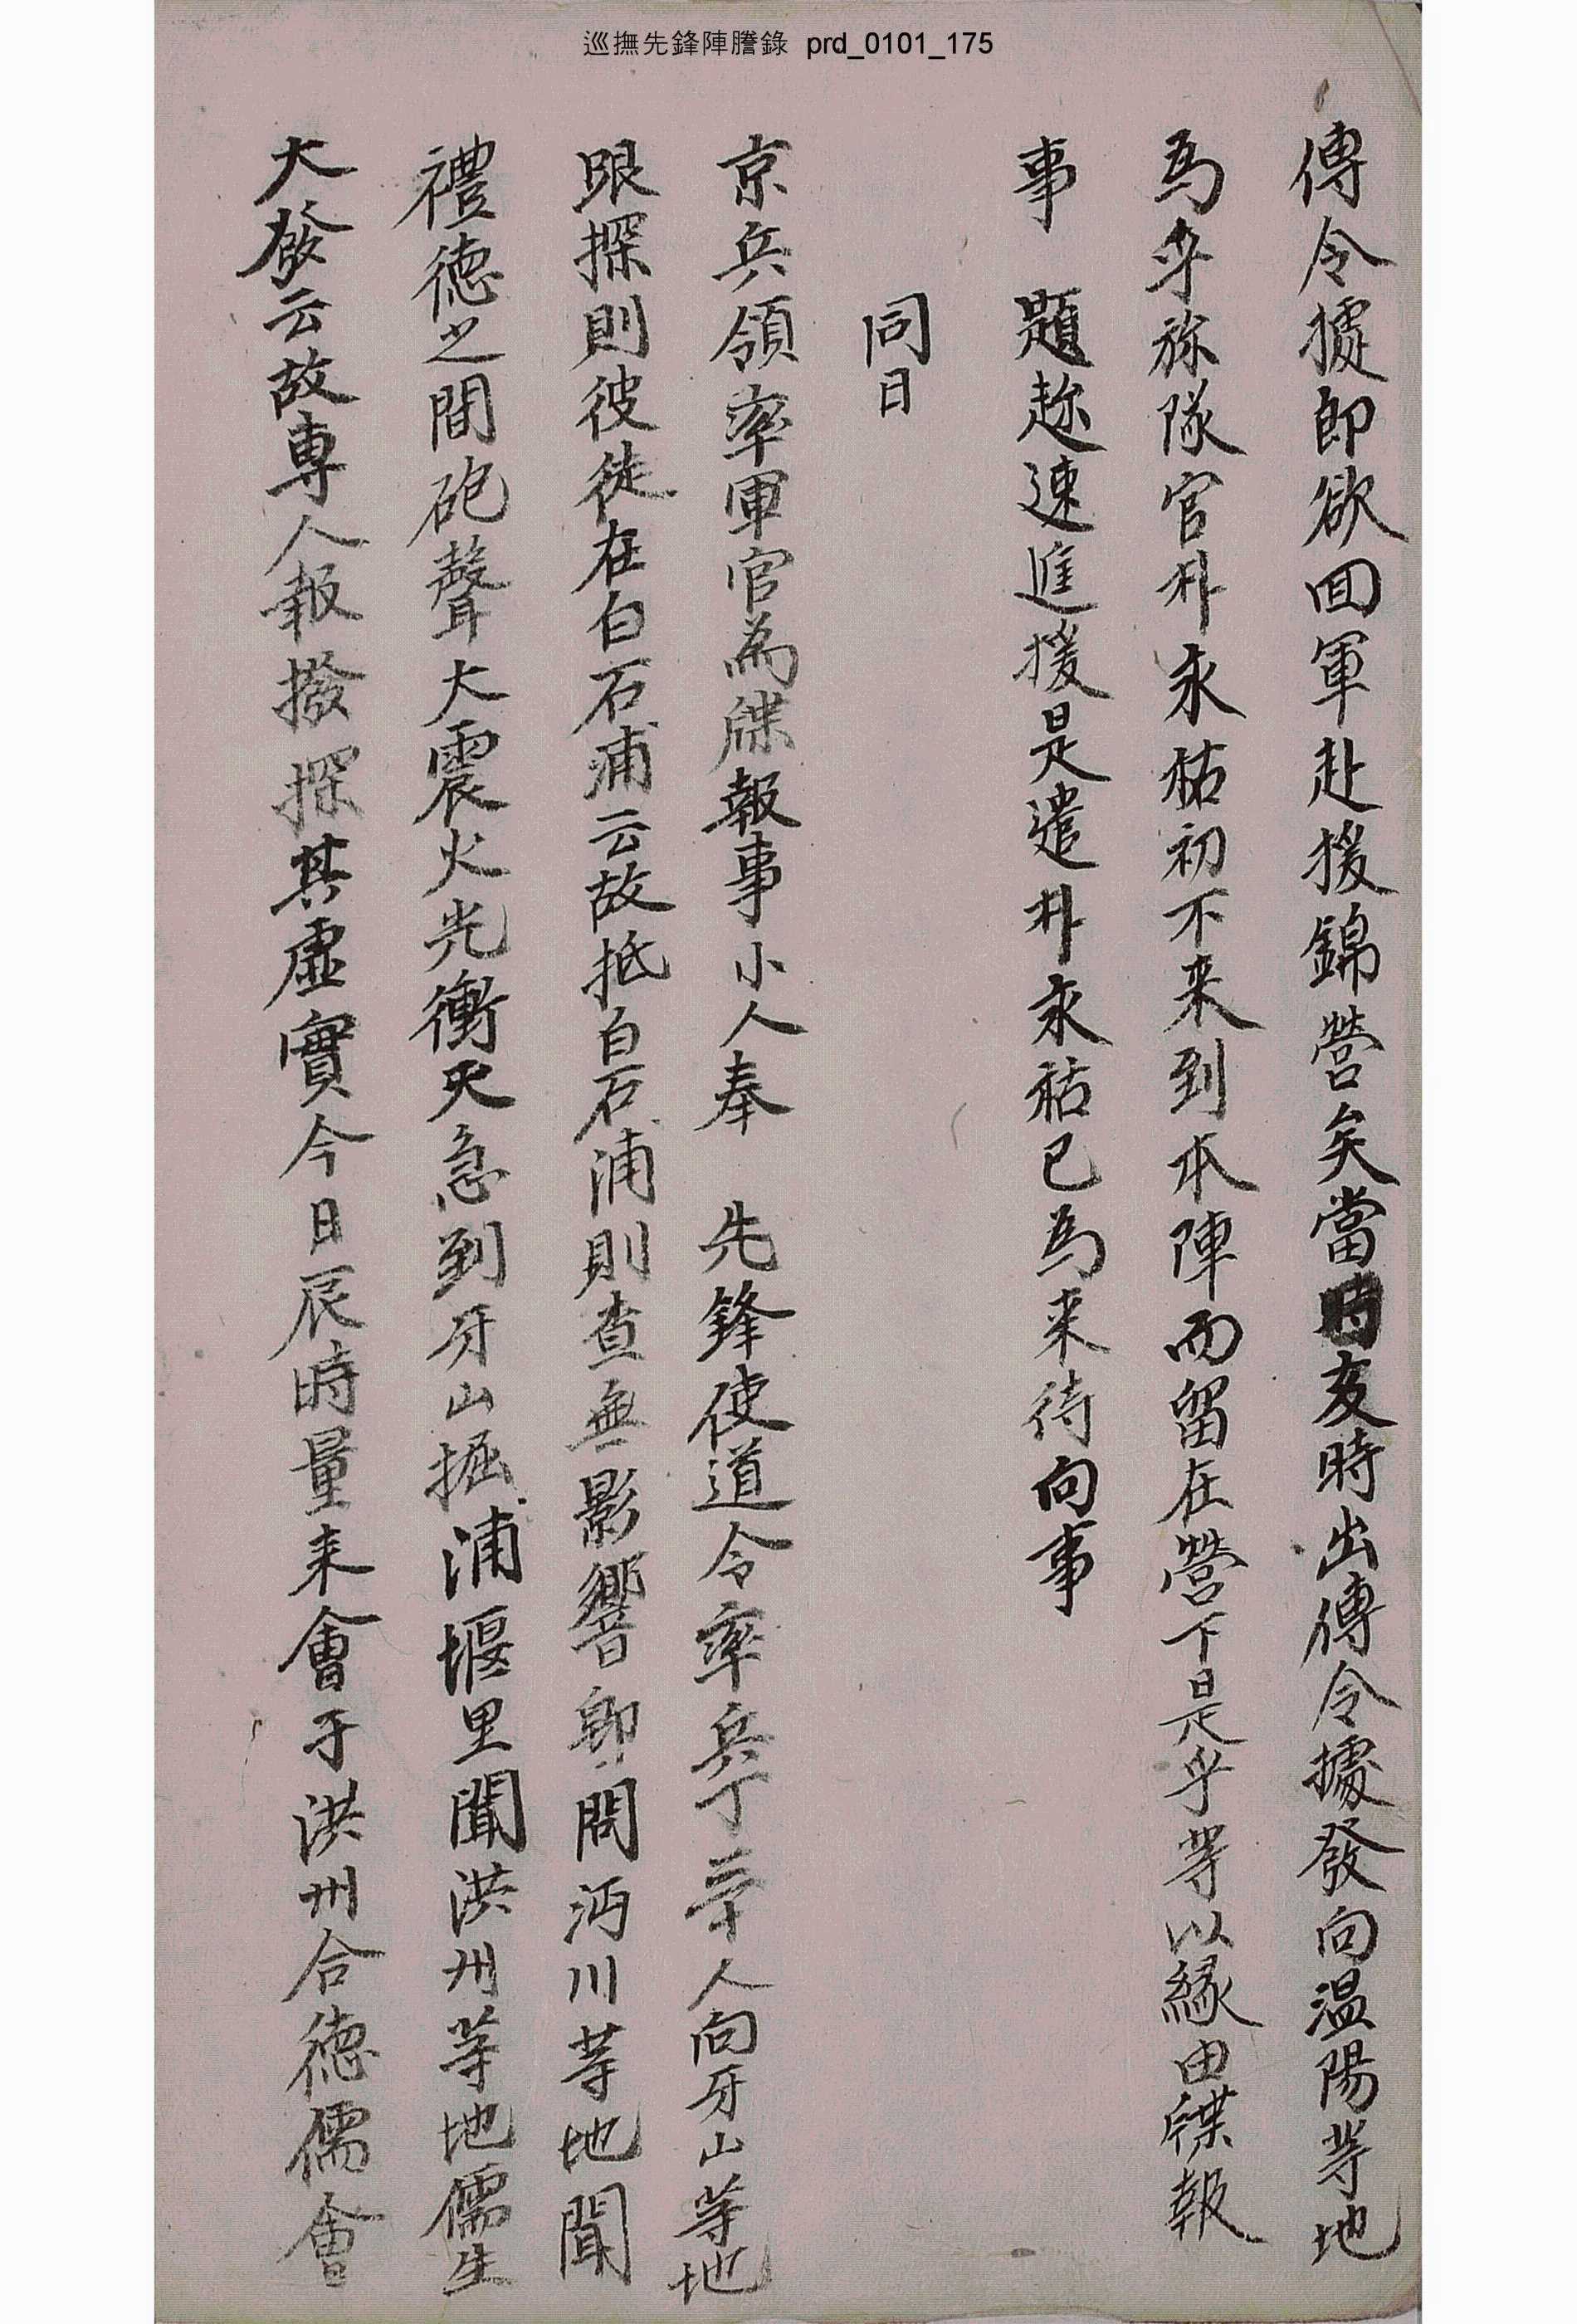 巡撫先鋒陣謄錄 prd_0101_175
傳令據卽欲回軍赴援錦營矣當時亥時出傳令據發向溫陽等地
爲乎旀隊官朴永祜初不来到本陣而留在營下是乎等以緣由牒報
事 題趂速進援是遣朴永祜已爲来待向事
同日
京兵領率軍官爲牒報事小人奉 先鋒使道令率兵丁 人向牙山等地
跟探則彼徒在白石浦云故抵白石浦則查無影響卽問沔川等地聞
禮德之間砲聲大震火光衝天急到牙山掘浦堰里聞洪州等地儒生
大發云故專人報撥探其虛實今日辰時量来會于洪州合德儒會